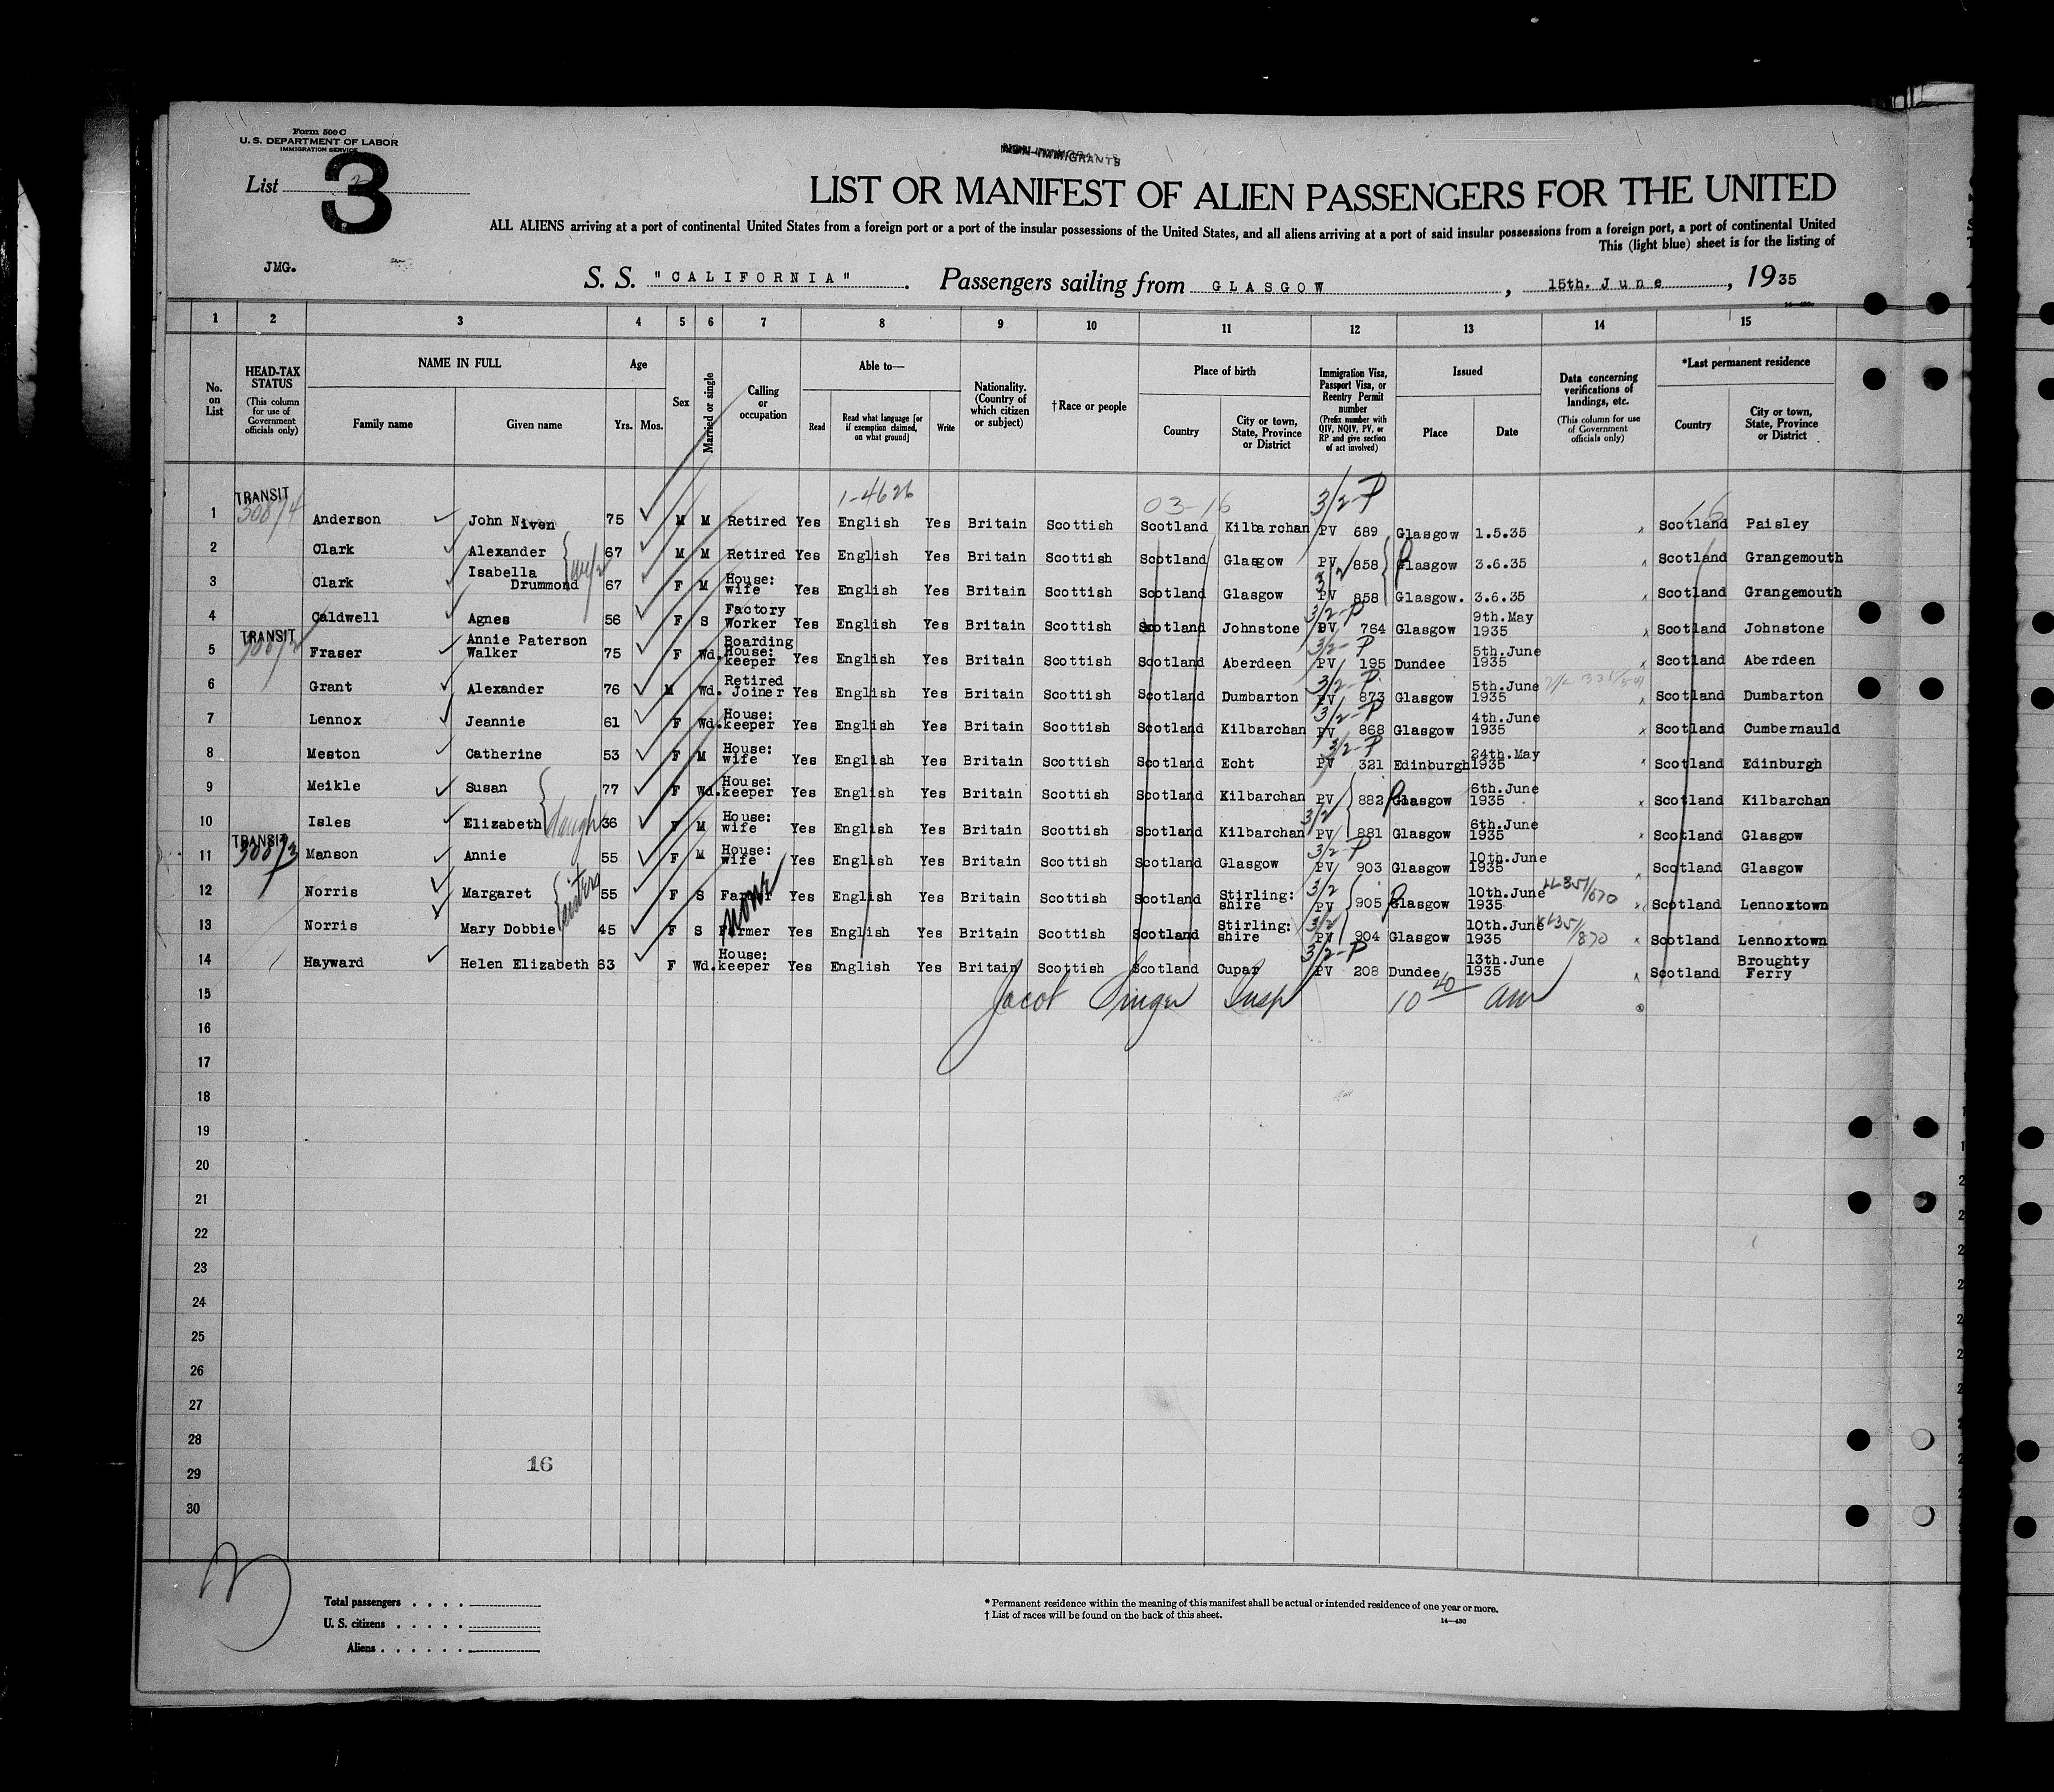 Form 500 C
U. S. DEPARTMENT OF LABOR
IMMIGRATION SERVICE
List 3
NON-IMMIGRANTS
LIST OR MANIFEST OF ALIEN PASSENGERS FOR THE UNITED
ALL ALIENS arriving at a port of continental United States from a foreign port or a port of the insular possessions of the United States, and all aliens arriving at a port of said insular possessions from a foreign port, a port of continental United
This (light blue) sheet is for the listing of
JMG.
S. S. "CALIFORNIA". Passengers sailing from GLASGOW, 15th. June, 1935
1 2 3 4 5 6 7 8 9 10 11 12 13 14 15
No. on List
HEAD-TAX STATUS (This column for use of Government officials only)
NAME IN FULL
Family name
Given name
Age
Yrs. Mos.
Sex
Married or single
Calling or occupation
Able to—
Read
Read what language [or if exemption claimed, on what ground]
Write
Nationality. (Country of which citizen or subject)
†Race or people
Place of birth
Country
City or town, State, Province or District
Immigration Visa, Passport Visa, or Reentry Permit number (Prefix number with QIV, NQIV, PV, or RP and give section of act involved)
Issued
Place
Date
Data concerning verifications of landings, etc. (This column for use of Government officials only)
*Last permanent residence
Country
City or town, State, Province or District
1-4626 03-16 3/2-P
1 TRANSIT 300/4 Anderson John Niven 75 M M Retired Yes English Yes Britain Scottish Scotland Kilbarchan PV 689 Glasgow 1.5.35 Scotland Paisley
2 Clark Alexander 67 M M Retired Yes English Yes Britain Scottish Scotland Glasgow PV 858 Glasgow 3.6.35 Scotland Grangemouth
3 Clark Isabella Drummond wife 67 F M House:wife Yes English Yes Britain Scottish Scotland Glasgow 3/2 PV 858 Glasgow. 3.6.35 Scotland Grangemouth
4 Caldwell Agnes 56 F S Factory Worker Yes English Yes Britain Scottish Scotland Johnstone 3/2-P PV 764 Glasgow 9th.May 1935 Scotland Johnstone
5 TRANSIT Fraser Annie Paterson Walker 75 F Wd. Boarding House:keeper Yes English Yes Britain Scottish Scotland Aberdeen 3/2-P PV 195 Dundee 5th.June 1935 Scotland Aberdeen
6 Grant Alexander 76 M Wd. Retired Joiner Yes English Yes Britain Scottish Scotland Dumbarton 3/2-P PV 873 Glasgow 5th.June 1935 Scotland Dumbarton
7 Lennox Jeannie 61 F Wd. House:keeper Yes English Yes Britain Scottish Scotland Kilbarchan 3/2-P PV 868 Glasgow 4th.June 1935 Scotland Cumbernauld
8 Meston Catherine 53 F M House:wife Yes English Yes Britain Scottish Scotland Echt 3/2-P PV 321 Edinburgh 24th.May 1935 Scotland Edinburgh
9 Meikle Susan 77 F Wd. House:keeper Yes English Yes Britain Scottish Scotland Kilbarchan PV 882 Glasgow 6th.June 1935 Scotland Kilbarchan
10 Isles Elizabeth daugh 36 F M House:wife Yes English Yes Britain Scottish Scotland Kilbarchan 3/2 PV 881 Glasgow 6th.June 1935 Scotland Glasgow
11 TRANSIT 300/3 Manson Annie 55 F M House:wife Yes English Yes Britain Scottish Scotland Glasgow 3/2-P PV 903 Glasgow 10th.June 1935 Scotland Glasgow
12 Norris Margaret sisters 55 F S Farmer none Yes English Yes Britain Scottish Scotland Stirling:shire 3/2 PV 905 Glasgow 10th.June 1935 Scotland Lennoxtown
13 Norris Mary Dobbie 45 F S Farmer Yes English Yes Britain Scottish Scotland Stirling:shire 3/2 PV 904 Glasgow 10th.June 1935 Scotland Lennoxtown
14 Hayward Helen Elizabeth 63 F Wd. House:keeper Yes English Yes Britain Scottish Scotland Cupar 3/2-P PV 208 Dundee 13th.June 1935 Scotland Broughty Ferry
15 Jacob Singer Insp 10 40 am
16
17
18
19
20
21
22
23
24
25
26
27
28
29
30
16
Total passengers
U. S. citizens
Aliens
* Permanent residence within the meaning of this manifest shall be actual or intended residence of one year or more.
† List of races will be found on the back of this sheet.
14—430